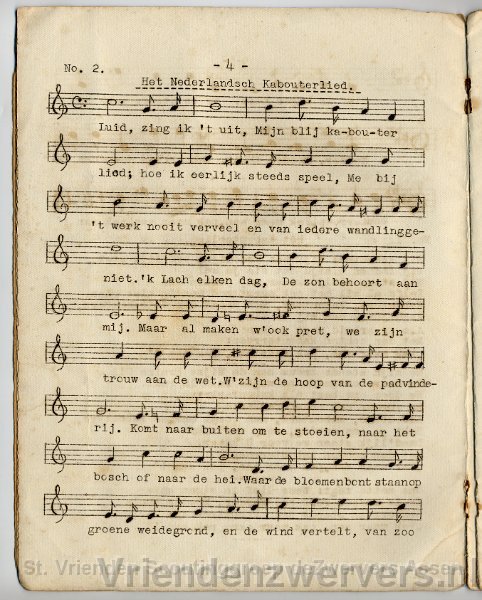 - 4 -
No. 2.
Het Nederlandsch Kabouterlied.
Luid, zing ik 't uit, Mijn blij ka-bou-ter
lied; hoe ik eerlijk steeds speel, Me bij
't werk nooit verveel en van iedere wandlingge-
niet.'k Lach elken dag, De zon behoort aan
mij. Maar al maken w'ook pret, we zijn
trouw aan de wet.W'zijn de hoop van de padvinde-
rij. Komt naar buiten om te stoeien, naar het
bosch of naar de hei.Waar de bloemenbont staanop
groene weidegrond, en de wind vertelt, van zoo
St. Vrienden Scoutinggroep deZwervers Assen
Vriendenzwervers.n